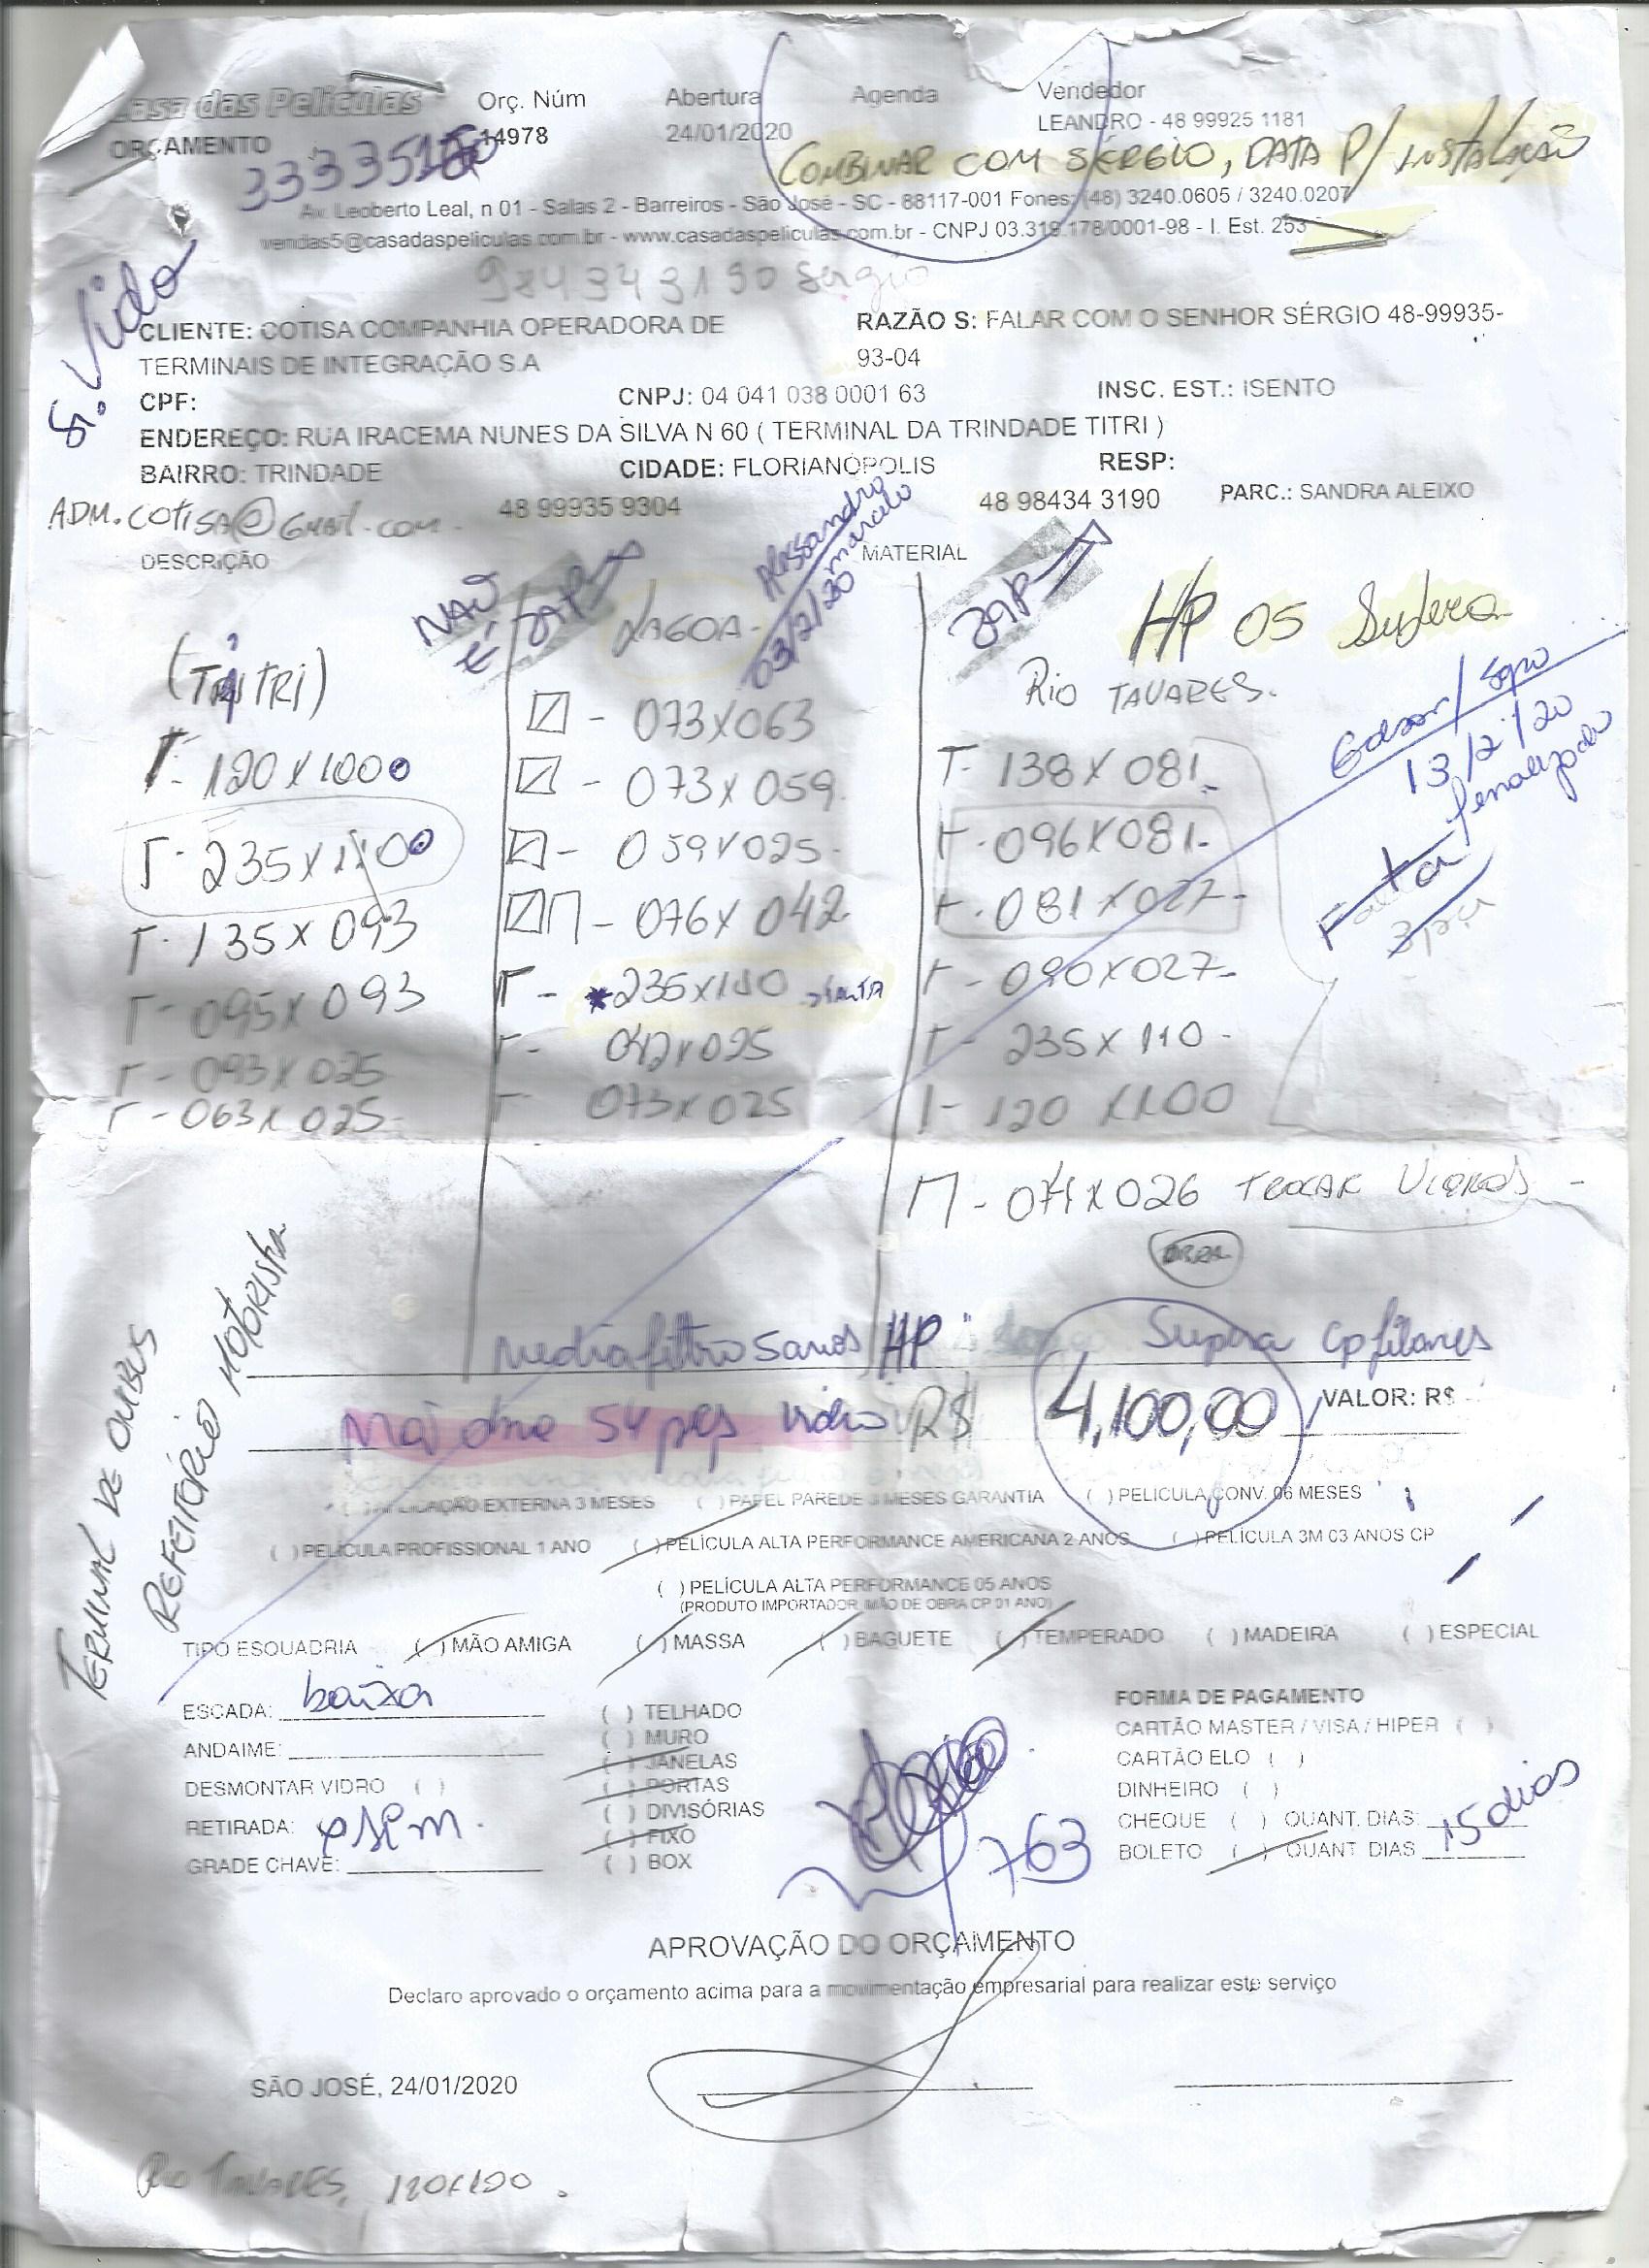 Casa das Películas Orç. Núm Abertura Agenda Vendedor
ORÇAMENTO 14978 24/01/2020 LEANDRO - 48 99925 1181
COMBINAR COM SÉRGIO, DATA P/ INSTALAÇÃO
Av. Leoberto Leal, n 01 - Salas 2 - Barreiros - São José - SC - 88117-001 Fones: (48) 3240.0605 / 3240.0207
vendas5@casadaspeliculas.com.br - www.casadaspeliculas.com.br - CNPJ 03.319.178/0001-98 - I. Est. 253
984343190 Sergio
CLIENTE: COTISA COMPANHIA OPERADORA DE RAZÃO S: FALAR COM O SENHOR SÉRGIO 48-99935-
TERMINAIS DE INTEGRAÇÃO S.A 93-04
CPF: CNPJ: 04 041 038 0001 63 INSC. EST.: ISENTO
ENDEREÇO: RUA IRACEMA NUNES DA SILVA N 60 ( TERMINAL DA TRINDADE TITRI )
BAIRRO: TRINDADE CIDADE: FLORIANÓPOLIS RESP:
ADM.COTISA@GMAIL.COM 48 99935 9304 48 98434 3190 PARC.: SANDRA ALEIXO
DESCRIÇÃO MATERIAL
NÃO É ZAP
LAGOA
Alessandro
Marcelo
03/2/20
ZAP
HP 05 Supera
(TITRI)
120 X 1000
235 X 1100
135 X 093
095 X 093
093 X 025
063 X 025
073 X 063
073 X 059
059 X 025
076 X 042
*235 X 110
042 X 025
073 X 025
RIO TAVARES.
138 X 081
096 X 081
081 X 027
090 X 027
235 X 110
120 X 100
071 X 026 TROCAR VIDROS
13/2/20
Falta
TERMINAL DE ONIBUS
REFEITÓRIO MOTORISTA
HP Supera
54 pçs vidro R$ 4.100,00 VALOR: R$
( ) APLICAÇÃO EXTERNA 3 MESES ( ) PAPEL PAREDE 3 MESES GARANTIA ( ) PELICULA CONV. 06 MESES
( ) PELÍCULA PROFISSIONAL 1 ANO ( ) PELÍCULA ALTA PERFORMANCE AMERICANA 2 ANOS ( ) PELÍCULA 3M 03 ANOS CP
( ) PELÍCULA ALTA PERFORMANCE 05 ANOS
(PRODUTO IMPORTADOR, MÃO DE OBRA CP 01 ANO)
TIPO ESQUADRIA ( ) MÃO AMIGA ( ) MASSA ( ) BAGUETE ( ) TEMPERADO ( ) MADEIRA ( ) ESPECIAL
ESCADA: baixa
ANDAIME:
DESMONTAR VIDRO ( )
RETIRADA:
GRADE CHAVE:
( ) TELHADO
( ) MURO
( ) JANELAS
( ) PORTAS
( ) DIVISÓRIAS
( ) FIXO
( ) BOX
763
FORMA DE PAGAMENTO
CARTÃO MASTER / VISA / HIPER ( )
CARTÃO ELO ( )
DINHEIRO ( )
CHEQUE ( ) QUANT. DIAS:
BOLETO ( ) QUANT. DIAS 15 dias
APROVAÇÃO DO ORÇAMENTO
Declaro aprovado o orçamento acima para a movimentação empresarial para realizar este serviço
SÃO JOSÉ, 24/01/2020
RIO TAVARES, 120X100.